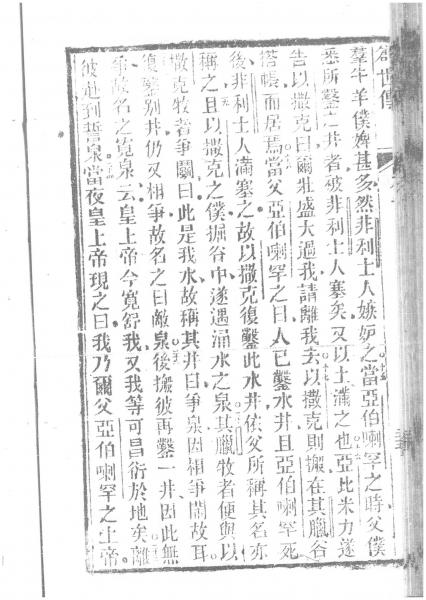 羣牛羊僕婢甚多然非利士人嫉妬之當亞伯喇罕之時父僕
悉所鑿之井者被非利士人塞矣又以土瀽之也亞比米力遂
告以撒克曰爾壯盛大過我請離我去以撒克則搬在其臘谷
搭帳而居焉當父亞伯喇罕之日人已鑿水井且亞伯喇罕死
後非利士人滿塞之故以撒克復鑿此水井依父所稱其名亦
稱之且以撒克之僕掘谷中遂遇涌水之泉其臘牧者便與以
撒克牧者爭鬬曰此是我水故稱其井曰爭泉因相爭鬧故耳
復鑿別井仍又相爭故名之曰敵泉後搬彼再鑿一井因此無
爭故名之寬泉云皇上帝今寬舒我又我等可昌衍於地矣離
彼赴到誓泉當夜皇上帝現之曰我乃爾父亞伯喇罕之上帝